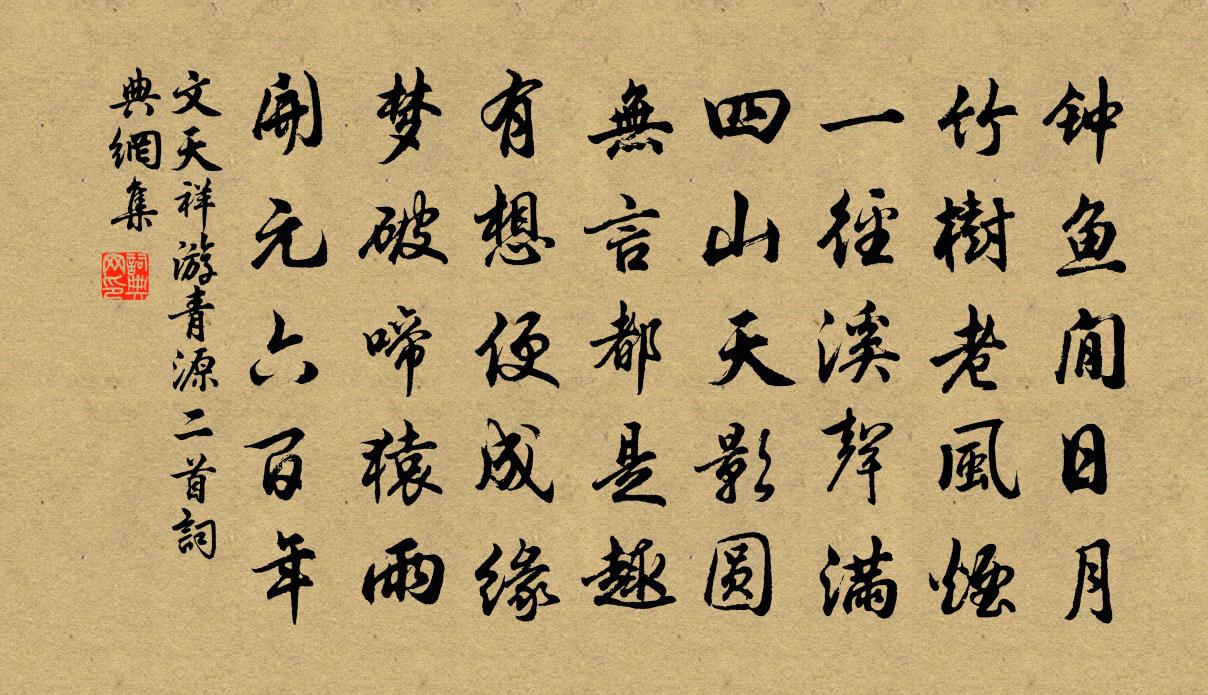 钟鱼闲日月
竹樹老風煙
一徑溪聲滿
四山天影圆
無言都是趣
有想便成緣
梦破啼猿雨
開元六百年
文天祥游青源二首詞
典網集
詞典网印